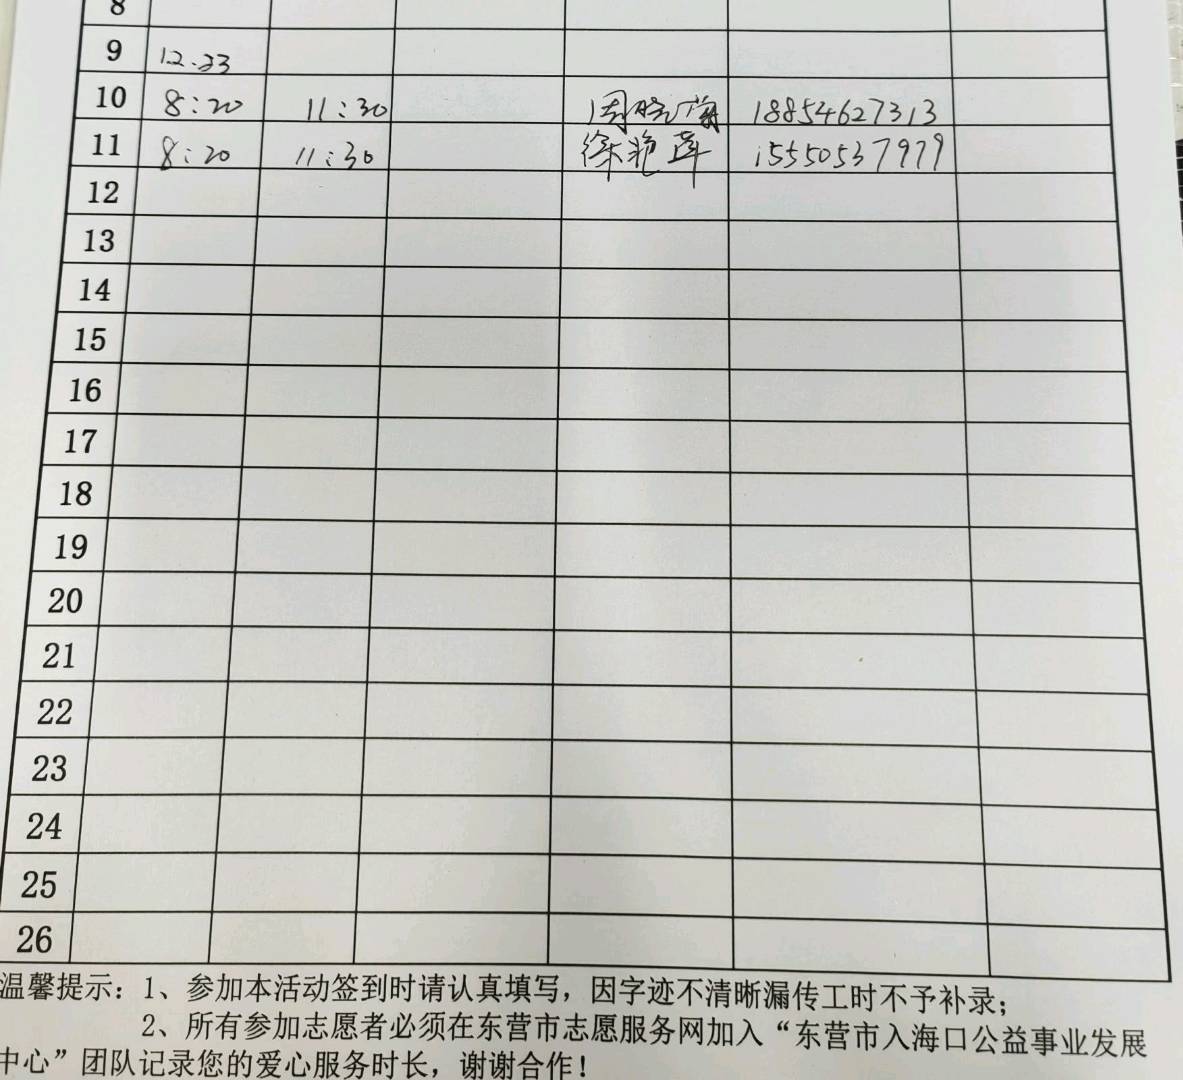 8
9 12.23
10 8:20 11:30 周晓 18854627313
11 8:20 11:30 徐艳莲 15550537979
12
13
14
15
16
17
18
19
20
21
22
23
24
25
26
温馨提示：1、参加本活动签到时请认真填写，因字迹不清晰漏传工时不予补录；
2、所有参加志愿者必须在东营市志愿服务网加入“东营市入海口公益事业发展
中心”团队记录您的爱心服务时长，谢谢合作！